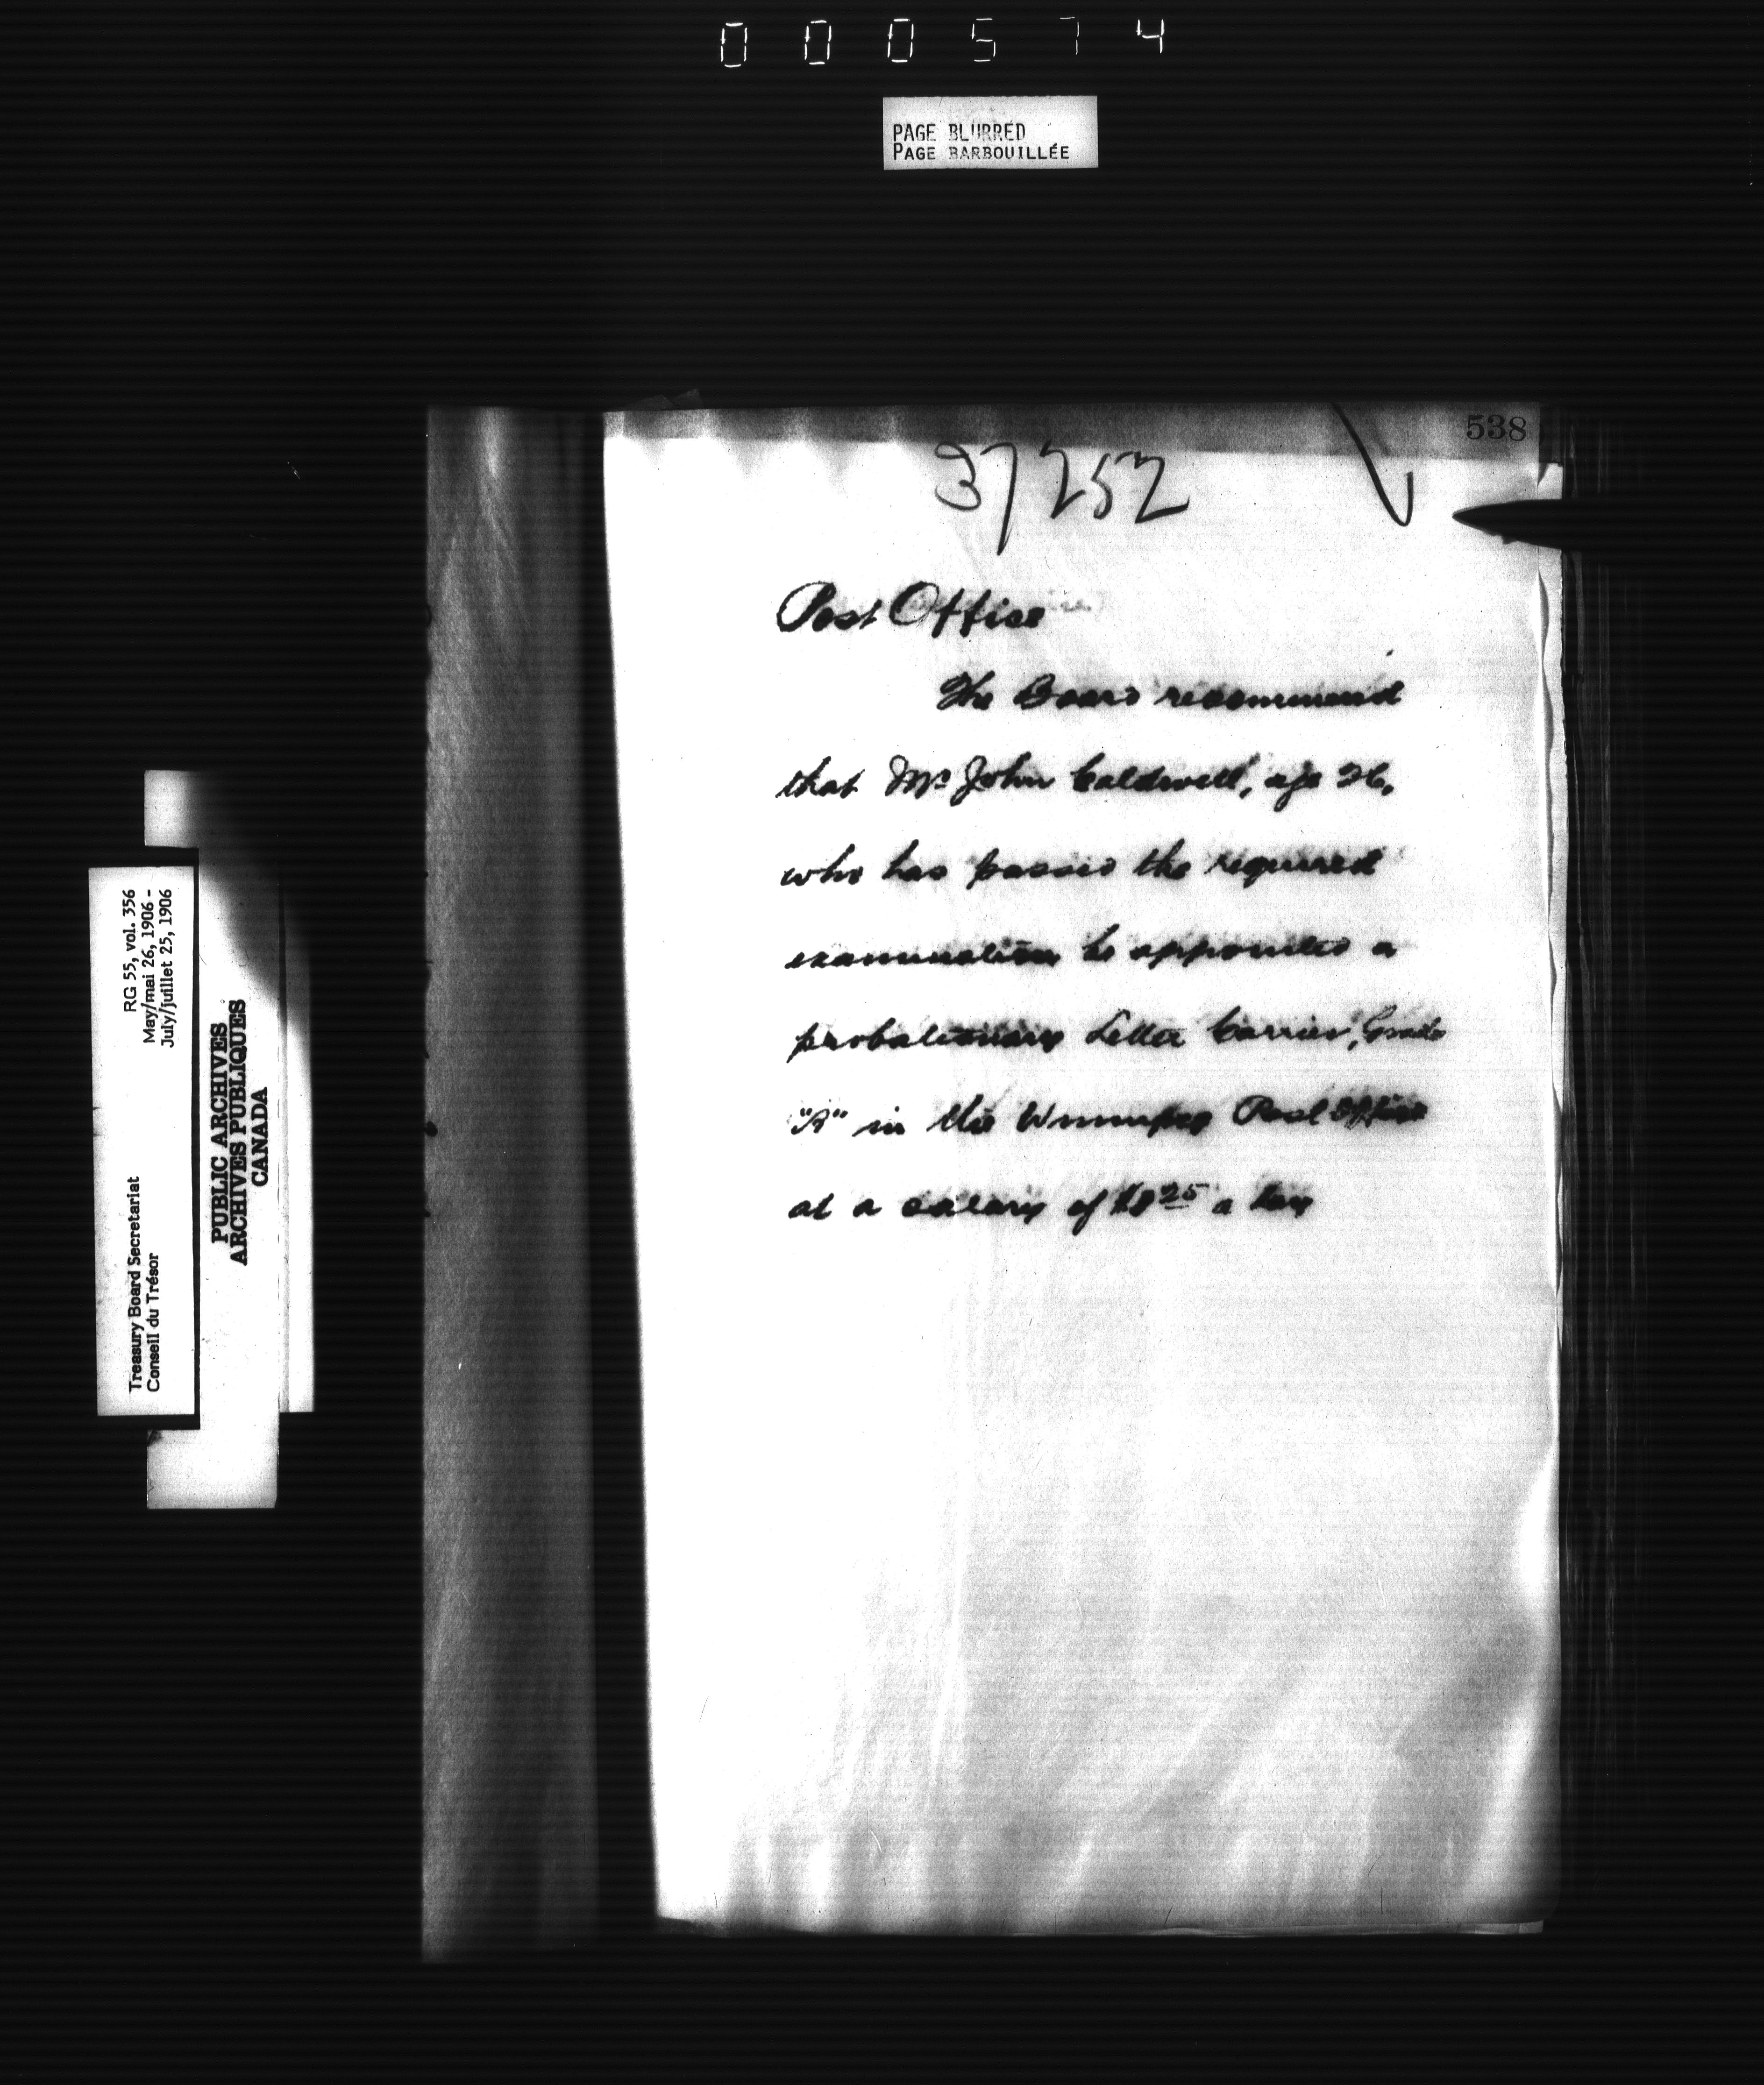 000574
PAGE BLURRED
PAGE BARBOUILLÉE
538
37252
Post Office
The Board recommend
that Mr John Caldwell, age 26,
who has passed the required
examination be appointed a
probationary Letter Carrier, Grade
in the Winnipeg Post Office
at a salary of a day
RG 55, vol. 356
May/mai 26, 1906 -
July/juillet 25, 1906
Treasury Board Secretariat
Conseil du Trésor
PUBLIC ARCHIVES
ARCHIVES PUBLIQUES
CANADA